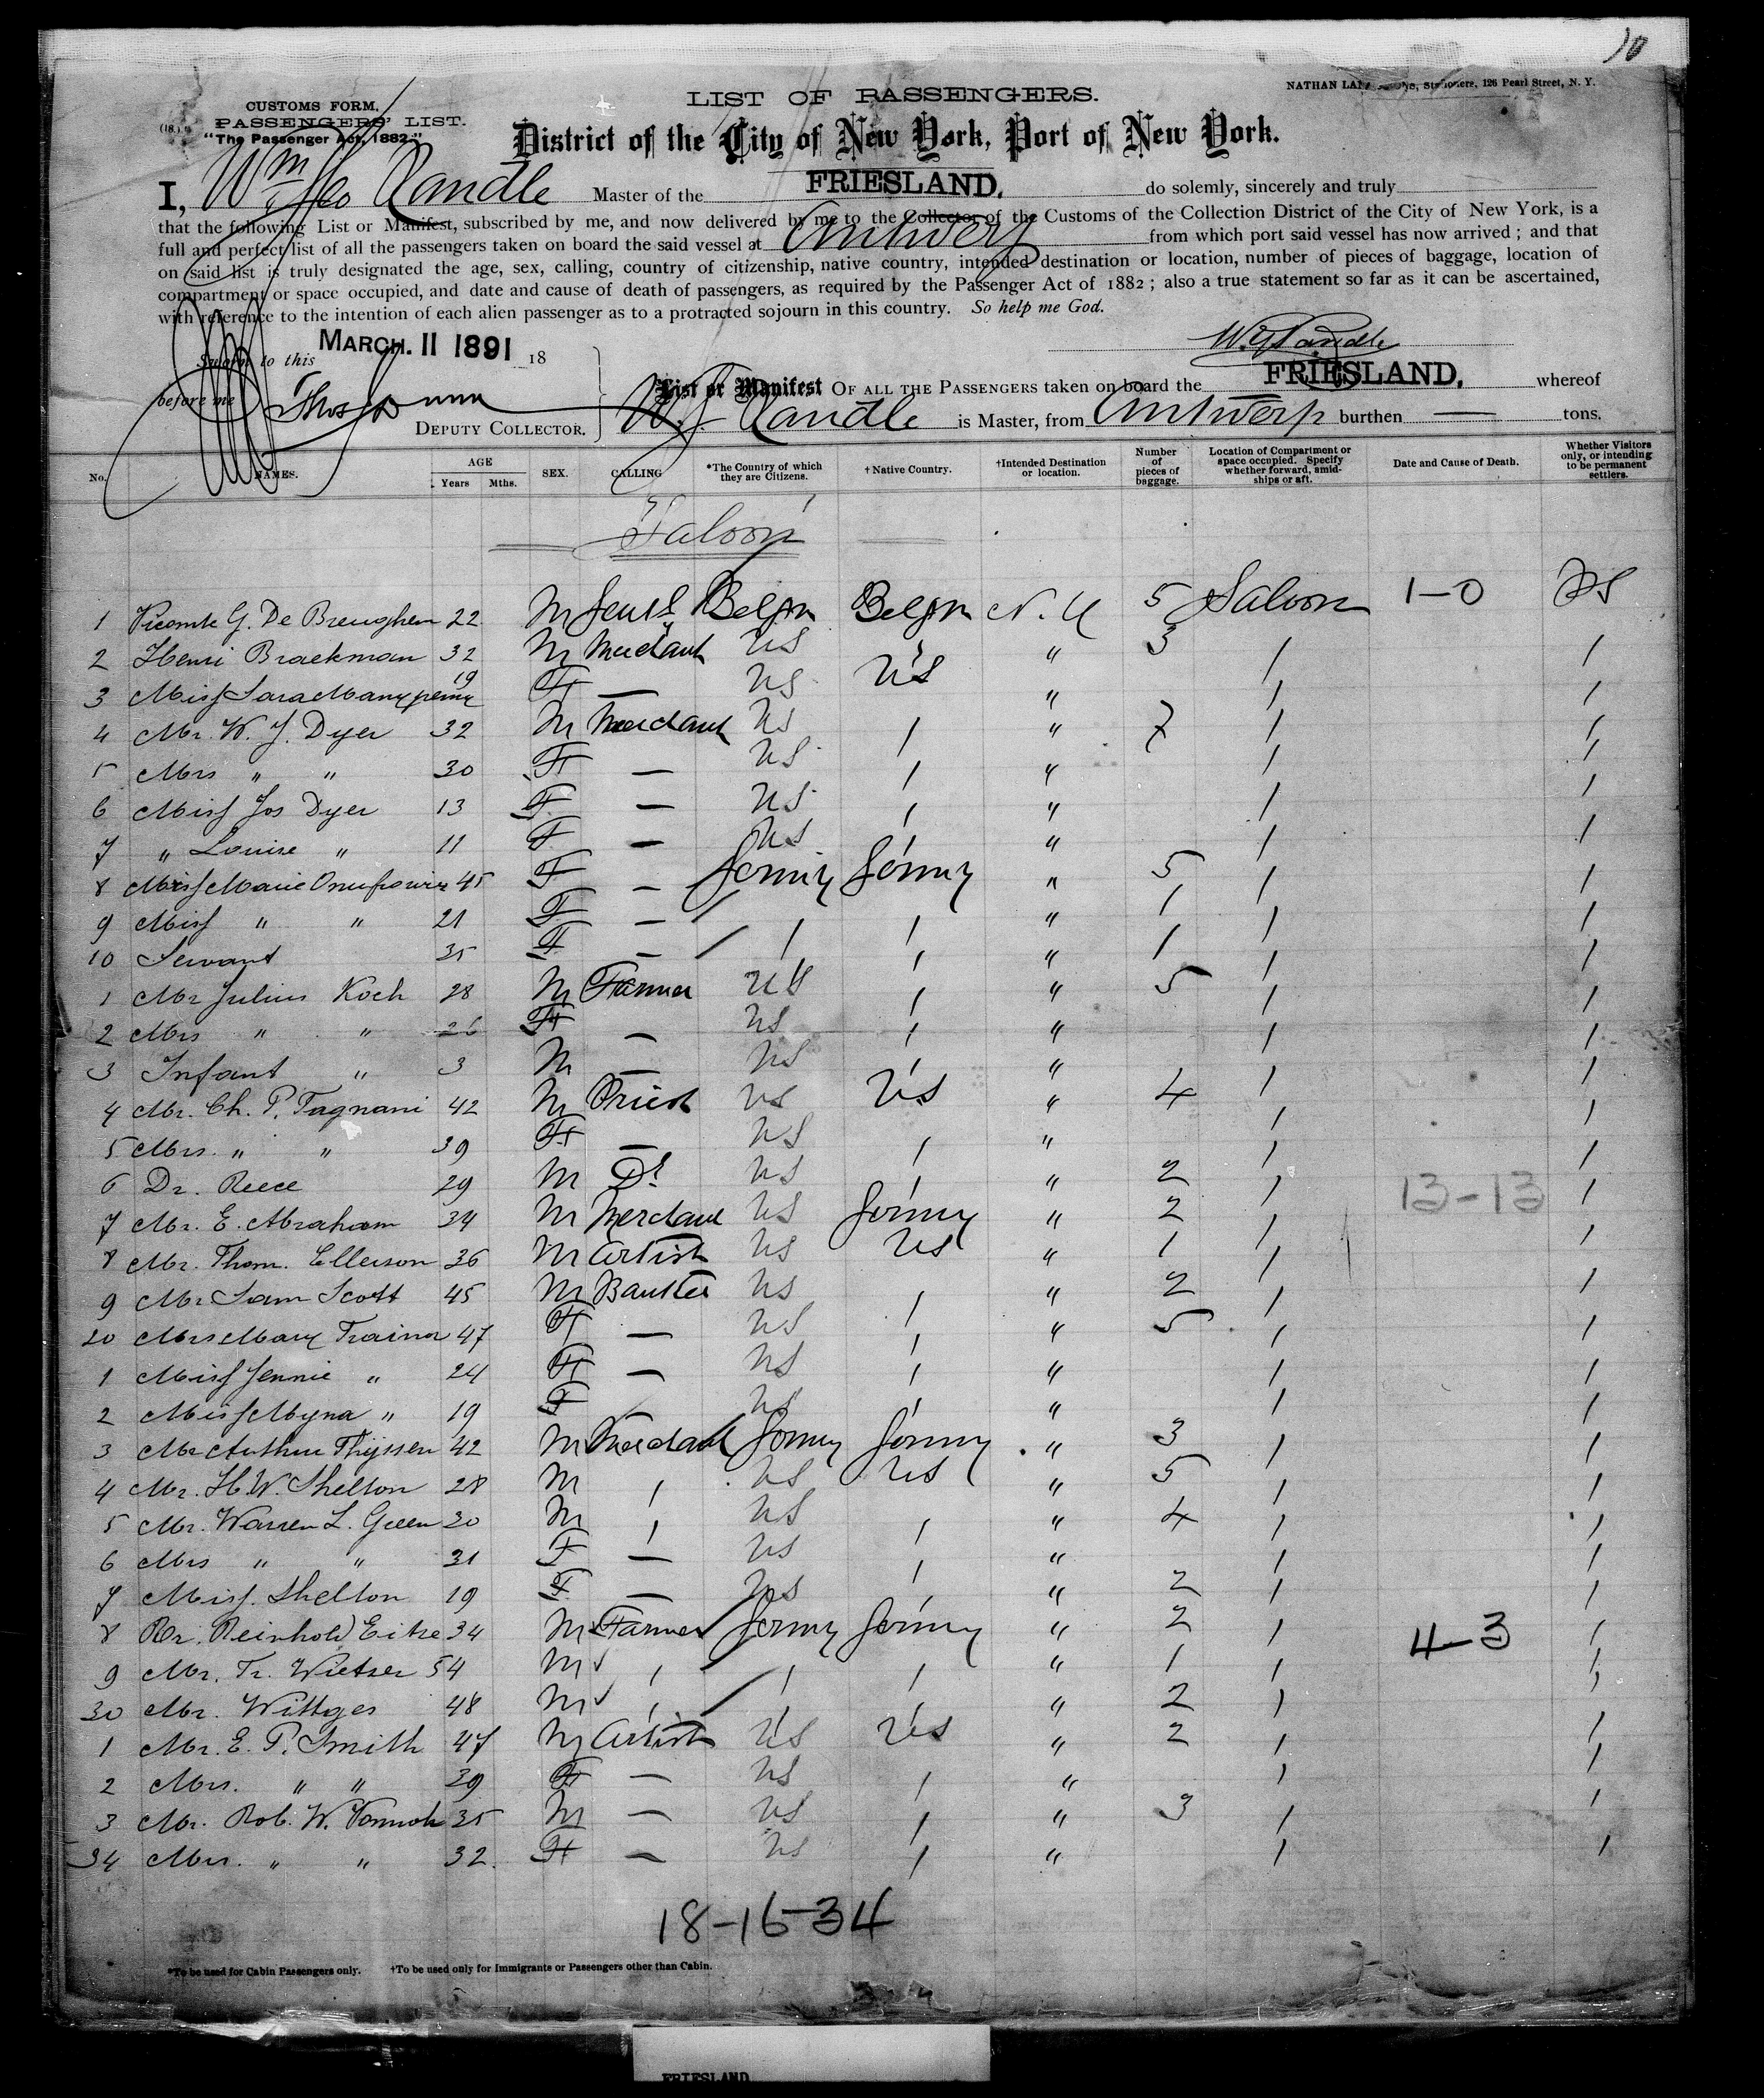 10
CUSTOMS FORM.
PASSENGERS' LIST.
"The Passenger Act, 1882."
LIST OF PASSENGERS.
NATHAN Stationers, 126 Pearl Street, N. Y.
District of the City of New York, Port of New York.
I, Wm Geo Randle Master of the FRIESLAND. do solemly, sincerely and truly
that the following List or Manifest, subscribed by me, and now delivered by me to the Collector of the Customs of the Collection District of the City of New York, is a
full and perfect list of all the passengers taken on board the said vessel at Antwerp from which port said vessel has now arrived ; and that
on said list is truly designated the age, sex, calling, country of citizenship, native country, intended destination or location, number of pieces of baggage, location of
compartment or space occupied, and date and cause of death of passengers, as required by the Passenger Act of 1882 ; also a true statement so far as it can be ascertained,
with reference to the intention of each alien passenger as to a protracted sojourn in this country. So help me God.
W. G. Randle
Sworn to this MARCH. 11 1891 18
before me Thos Dunn
DEPUTY COLLECTOR.
List or Manifest OF ALL THE PASSENGERS taken on board the FRIESLAND. whereof
W. G. Randle is Master, from Antwerp burthen — tons.
No. NAMES. AGE Years Mths. SEX. CALLING *The Country of which they are Citizens. †Native Country. †Intended Destination or location. Number of pieces of baggage. Location of Compartment or space occupied. Specify whether forward, amidships or aft. Date and Cause of Death. Whether Visitors only, or intending to be permanent settlers.
Saloon
1 Vicomte G. De Breughem 22 M Belgm Belgm N. Y 5 Saloon 1-0
2 Henri Braekman 32 M Merchant US " 3 / /
3 Miss Sara 19 F — US US " / /
4 Mr. W. J. Dyer 32 M Merchant US / " 7 / /
5 Mrs " " 30 F — US / " / /
6 Miss Jos Dyer 13 F — US / " / /
7 " Louise " 11 F — US / " / /
8 Marie 45 F — Germny Germny " 5 / /
9 Miss " " 21 F — / / " 1 / /
10 Servant 35 F — / / " 1 / /
1 Mr Julius Koch 28 M Farmer US / " 5 / /
2 Mrs " " 26 F — US / " / /
3 Infant " 3 M — US / " / /
4 Mr. Ch. P. Fagnani 42 M Priest US US " 4 / /
5 Mrs. " " 39 F — US / " / /
6 Dr. Reece 29 M Dr US / " 2 / 13-13 /
7 Mr. E. Abraham 34 M Merchant US Germny " 2 / /
8 Mr. Thom. Ellerson 36 M Artist US US " 1 / /
9 Mr Sam Scott 45 M Banker US / " 2 / /
20 Mrs Mary Trainor 47 F — US / " 5 / /
1 Miss Jennie " 24 F — US / " / /
2 Miss Myna " 19 F US / " / /
3 Mr Arthur Thyssen 42 M Merchant Germny Germny " 3 / /
4 Mr. H. W. Shelton 28 M / US US " 5 / /
5 Mr. Warren L. Green 30 M / US / " 4 / /
6 Mrs " " 31 F — US / " / /
7 Miss. Shelton 19 F — US / " 2 / /
8 Reinhold Eitze 34 M Farmer Germny Germny " 2 / 4-3 /
9 Mr. Fr. Wietzer 54 M / / / " 1 / /
30 Mr. Wittges 48 M / / / " 2 / /
1 Mr. E. P. Smith 47 M Artist US US " 2 / /
2 Mrs. " " 39 F — US / " / /
3 Mr. Rob. W. Vonnoh 35 M — US / " 3 / /
34 Mrs. " " 32. F — US / " / /
18-16-34
*To be used for Cabin Passengers only. †To be used only for Immigrants or Passengers other than Cabin.
FRIESLAND